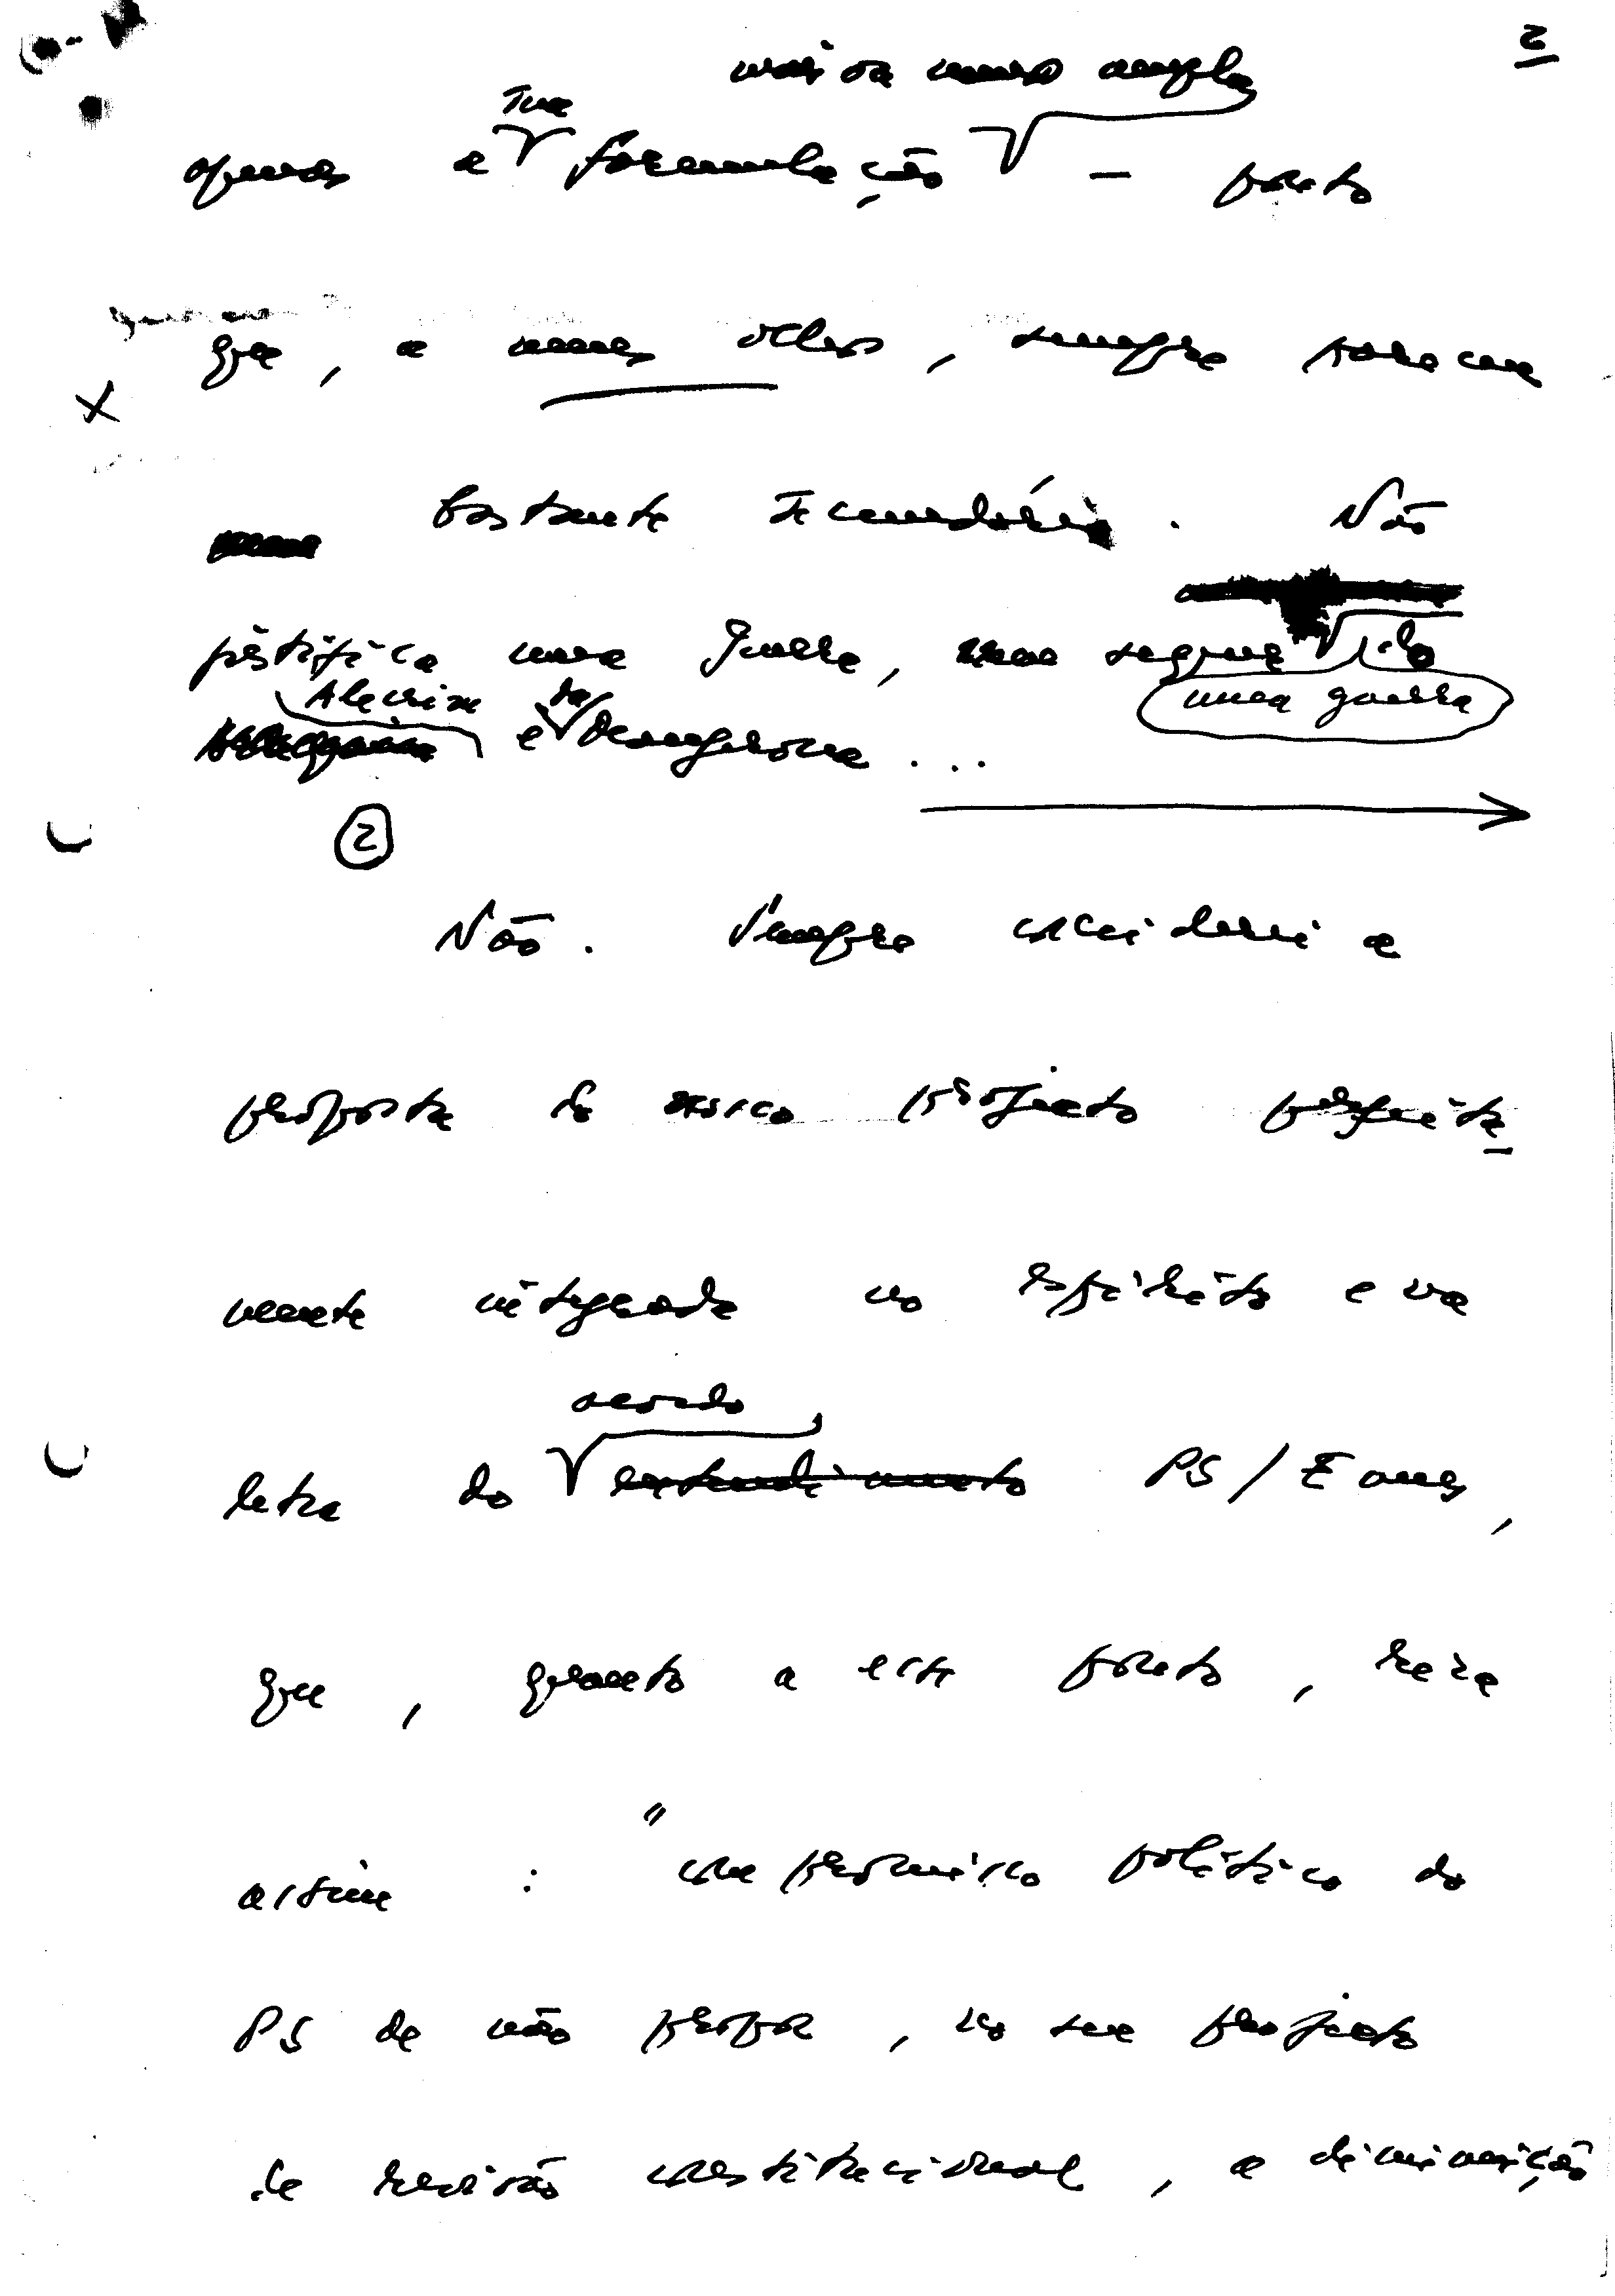 2
mais ou menos ampla
sua
apenas a formulação – ponto
que, a meus olhos, sempre foi
bastante secundário. Não
justifica uma guerra, uma segunda
uma guerra
Alecrim e da Manjerona...
2
Não. Sempre considerei a
proposta do nosso projecto perfeita-
mente integrada no espírito e na
acordo
letra do entendimento PS/Eanes,
que, quanto a este ponto, reza
assim: "compromisso político do
PS de não propor, no seu projecto
de revisão constitucional, a diminuição